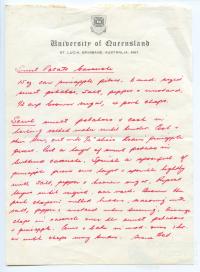 University of Queensland
ST. LUCIA, BRISBANE, AUSTRALIA, 4067
Sweet Potato Casserole
15 oz can pineapple pieces, 6 med. sized
sweet potatoes, salt, pepper & mustard,
½ cup brown sugar, 6 pork chops.
Scrub sweet potatoes & cook in
boiling salted water until tender. Cool &
then cut into slices. Drain pineapple
pieces. Put a layer of sweet potatoes in
buttered casserole. Sprinkle a spoonful of
pineapple pieces over layer & sprinkle lightly
with salt, pepper & brown sugar. Repeat
layers until required. Brown the
pork chops until tender, seasoning with
salt, pepper & mustard when turning. Arrange
chops in casserole over the sweet potatoes
& pineapple. Cover & bake in mod. oven
or until chops very tender.